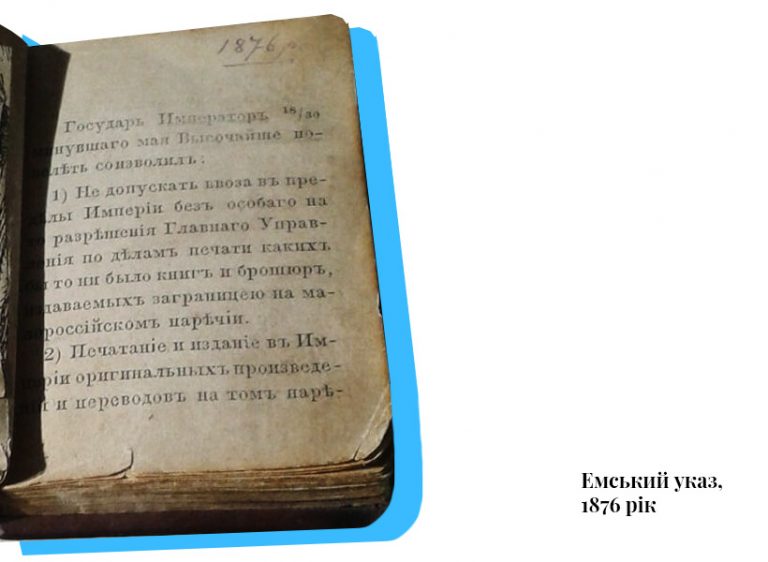 1876 р.
Государь Императоръ 18/30
минувшаго мая Высочайше по-
велѣть соизволилъ:
1) Не допускать ввоза въ пре-
дѣлы Имперіи безъ особаго на
то разрѣшенія Главнаго Управ-
ленія по дѣламъ печати какихъ
бы то ни было книгъ и брошюръ,
издаваемыхъ заграницею на ма-
лороссійскомъ нарѣчіи.
2) Печатаніе и изданіе въ Им-
періи оригинальныхъ произведе-
ній и переводовъ на томъ нарѣ-
Емський указ,
1876 рік